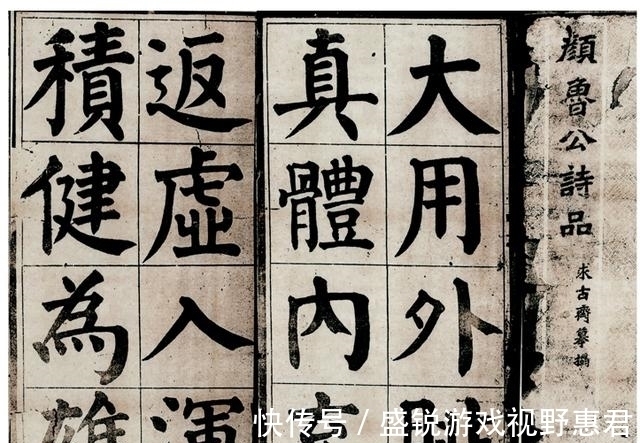 顔魯公詩品
求古齋摹搨
大用外
真體內
返虛入渾
積健為雄
快传号 / 盛锐游戏视野惠君